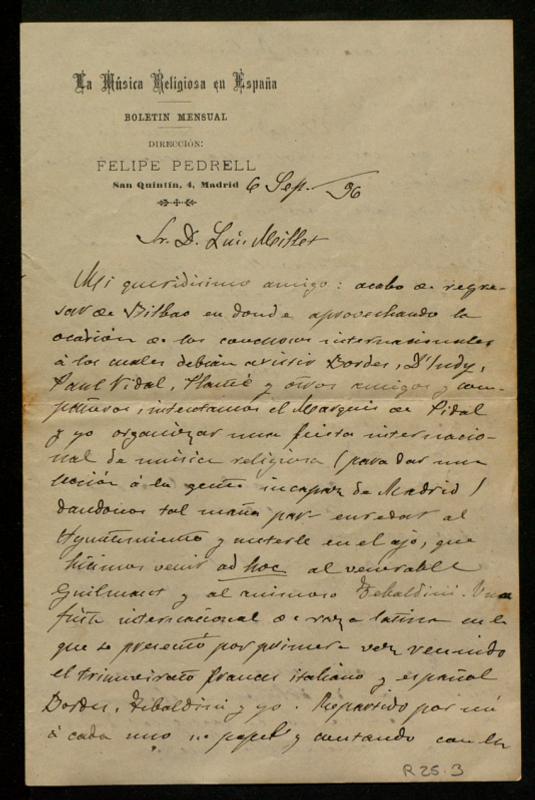 La Música Religiosa en España
BOLETIN MENSUAL
DIRECCIÓN:
FELIPE PEDRELL
San Quintín, 4, Madrid 6 Sep. 96
Sr. D. Luis Millet
Mi queridisimo amigo: acabo de regre-
sar de Bilbao en donde aprovechando la
ocasión de los concursos internacionales
á los cuales debian asistir Bordes, D'Indy,
Paul Vidal, y otros amigos y com-
pañeros, intentamos el Marqués de Pidal
y yo organizar una fiesta internacio-
nal de música religiosa (para dar una
lección á la gente incapaz de Madrid)
dandonos tal maña para enredar al
Ayuntamiento y meterle en el ajo, que
hicimos venir ad hoc al venerable
Guilmant y al animoso Tebaldini. Una
fiesta internacional de raza latina en la
que se presentó por primera vez reunido
el triunvirato frances italiano y español
Bordes, Tebaldini y yo. Repartido por mi
á cada uno su papel y contando con la
R 25.3